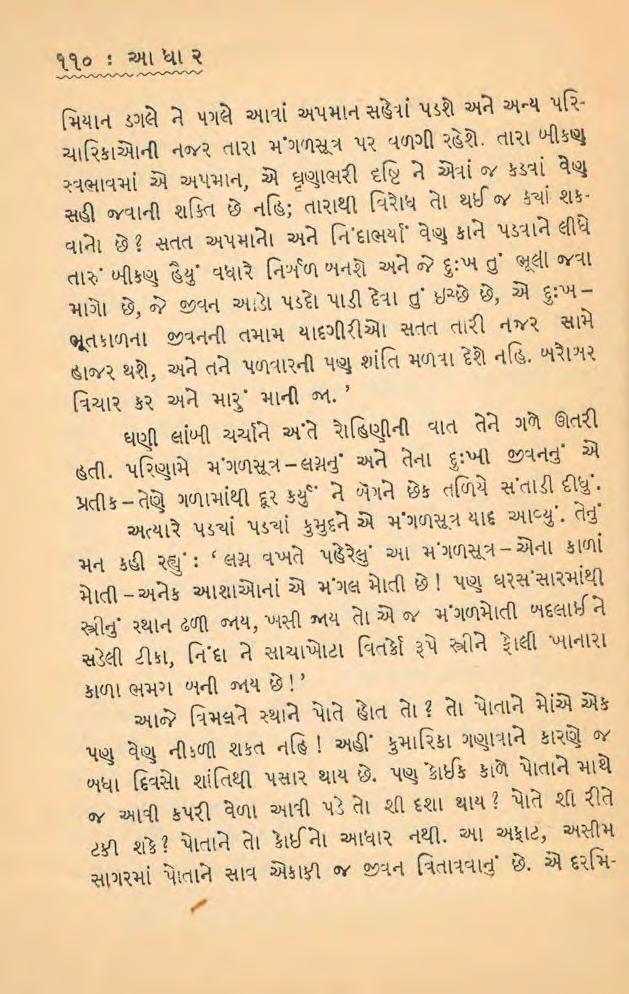 ૧૧૦ : આ ધા ર
મિયાન ડગલે ને પગલે આવાં અપમાન સહેવાં પડશે અને અન્ય પરિ-
ચારિકાઓની નજર તારા મંગળસૂત્ર પર વળગી રહેશે. તારા બીકણ
સ્વભાવમાં એ અપમાન, એ ઘૃણાભરી દૃષ્ટિ ને એવાં જ કડવાં વેણ
સહી જવાની શક્તિ છે નહિ; તારાથી વિરોધ તો થઈ જ ક્યાં શક-
વાનો છે? સતત અપમાનો અને નિંદાભર્યાં વેણ કાને પડવાને લીધે
તારું બીકણ હૈયું વધારે નિર્બળ બનશે અને જે દુઃખ તું ભૂલી જવા
માગે છે, જે જીવન આડો પડદો પાડી દેવા તું ઇચ્છે છે, એ દુઃખ –
ભૂતકાળના જીવનની તમામ યાદગીરીઓ સતત તારી નજર સામે
હાજર થશે, અને તને પળવારની પણ શાંતિ મળવા દેશે નહિ. બરોબર
વિચાર કર અને મારું માની જા. ’
ઘણી લાંબી ચર્ચાને અંતે રોહિણીની વાત તેને ગળે ઊતરી
હતી. પરિણામે મંગળસૂત્ર – લગ્નનું અને તેના દુઃખી જીવનનું એ
પ્રતીક – તેણે ગળામાંથી દૂર કર્યું ને બૅગને છેક તળિયે સંતાડી દીધું.
અત્યારે પડ્યાં પડ્યાં કુમુદને એ મંગળસૂત્ર યાદ આવ્યું. તેનું
મન કહી રહ્યું : ‘ લગ્ન વખતે પહેરેલું આ મંગળસૂત્ર – એના કાળાં
મોતી – અનેક આશાઓનાં એ મંગલ મોતી છે! પણ ઘરસંસારમાંથી
સ્ત્રીનું સ્થાન ઢળી જાય, ખસી જાય તો એ જ મંગળમોતી બદલાઈ ને
સડેલી ટીકા, નિંદા ને સાચાખોટા વિતર્કો રૂપે સ્ત્રીને ફોલી ખાનારા
કાળા ભમરા બની જાય છે!’
આજે વિમલને સ્થાને પોતે હોત તો? તો પોતાને મોંએ એક
પણ વેણ નીકળી શકત નહિ! અહીં કુમારિકા ગણાવાને કારણે જ
બધા દિવસો શાંતિથી પસાર થાય છે. પણ કોઈક કાળે પોતાને માથે
જ આવી કપરી વેળા આવી પડે તો શી દશા થાય? પોતે શી રીતે
ટકી શકે? પોતાને તો કોઈનો આધાર નથી. આ અફાટ, અસીમ
સાગરમાં પોતાને સાવ એકાકી જ જીવન વિતાવવાનું છે. એ દરમિ-